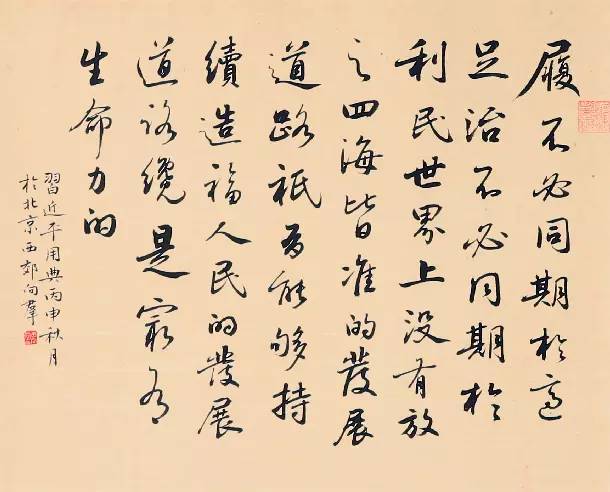 履不必同期於適
足治不必同期於
利民世界上没有放
之四海皆准的發展
道路祇有能够持
續造福人民的發展
道路纔是最有
生命力的
習近平用典丙申秋月
於北京西郊向羣